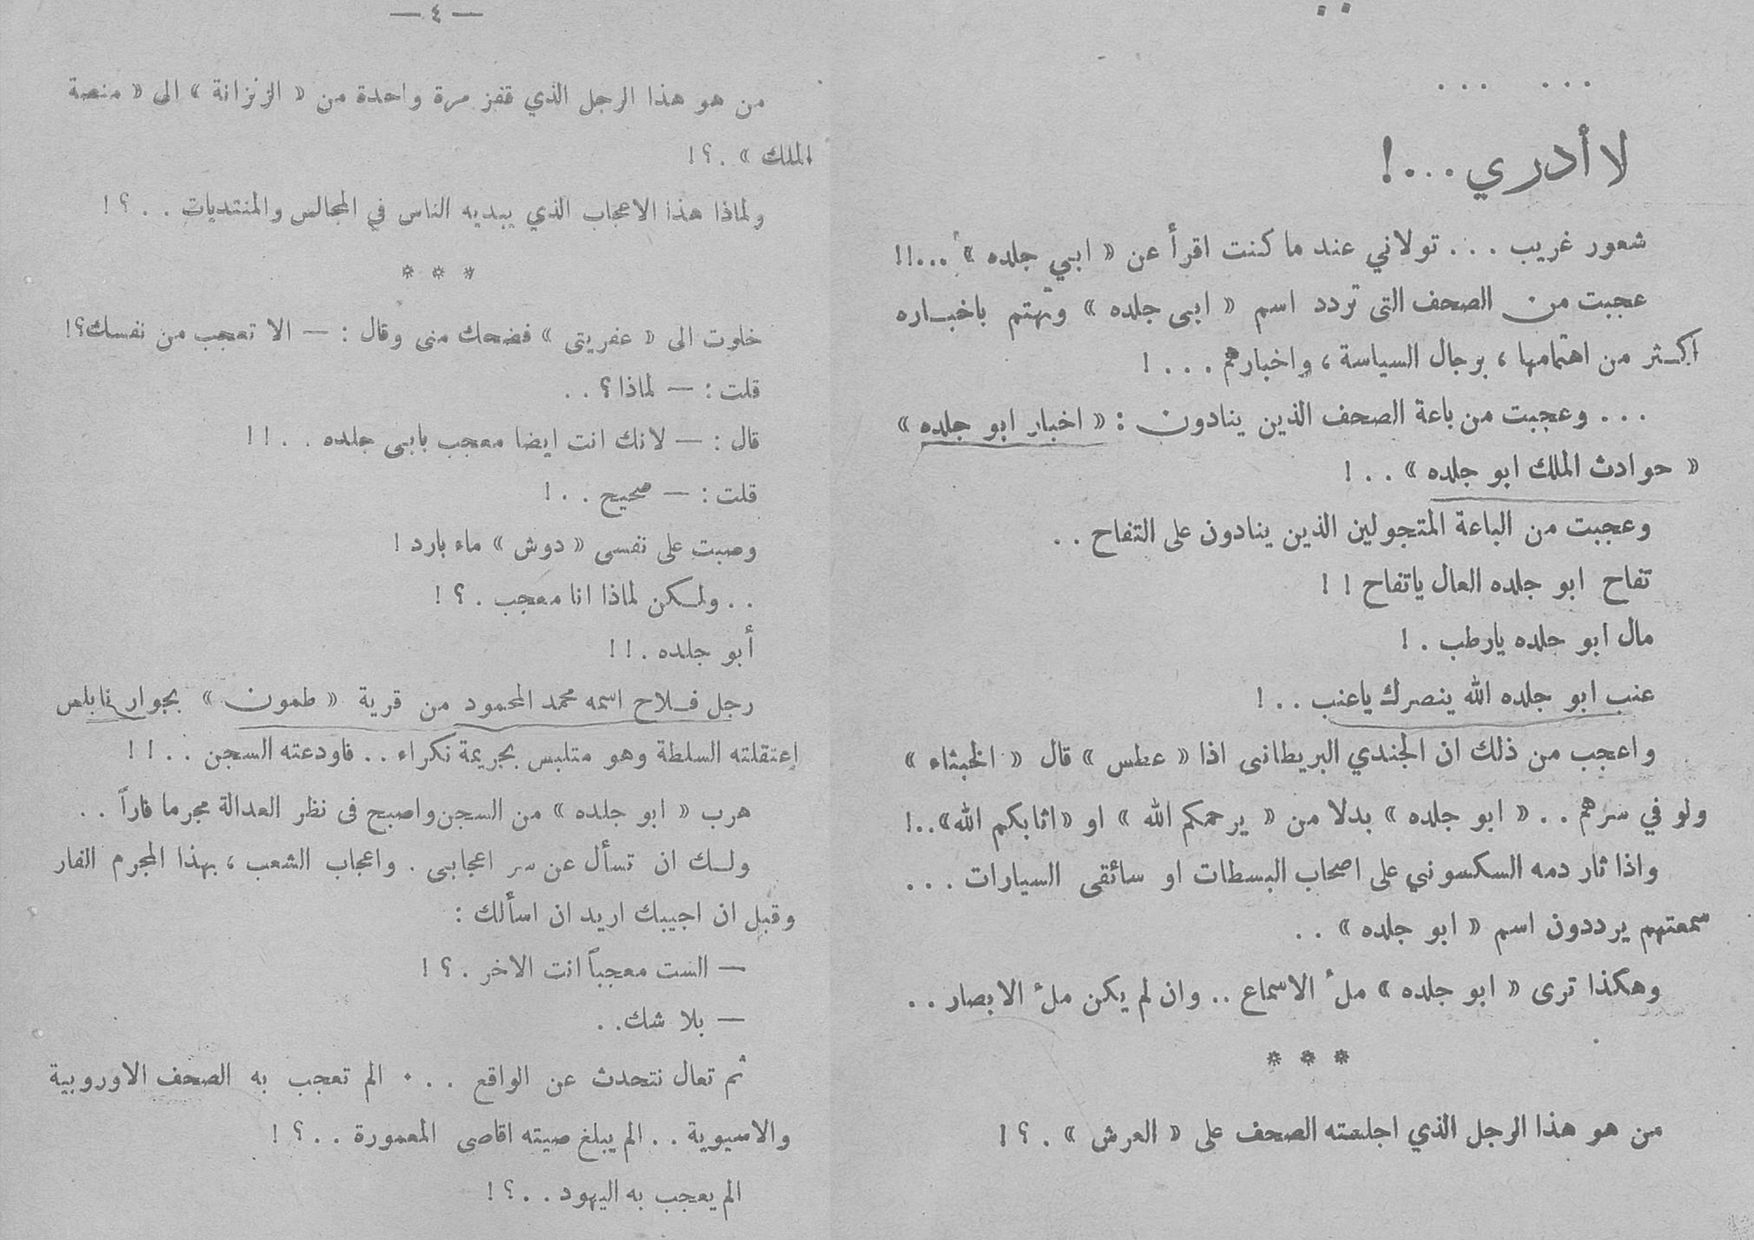 ... ...
لا أدري ...!
شعور غريب ... تولاني عند ما كنت اقرأ عن « ابي جلده » ...!!
عجبت من الصحف التى تردد اسم « ابى جلده » وتهتم باخباره
اكثر من اهتمامها ، برجال السياسة ، واخبارهم ...!
... وعجبت من باعة الصحف الذين ينادون : « اخبار ابو جلده »
« حوادث الملك ابو جلده » ..!
وعجبت من الباعة المتجولين الذين ينادون على التفاح ..
تفاح ابو جلده العال ياتفاح !!
مال ابو جلده يارطب .!
عنب ابو جلده الله ينصرك ياعنب ..!
واعجب من ذلك ان الجندي البريطانى اذا « عطس » قال « الخبثاء »
ولو في سرهم .. « ابو جلده » بدلا من « يرحمكم الله » او « اثابكم الله» ..!
واذا ثار دمه السكسوني على اصحاب البسطات او سائقى السيارات ...
سمعتهم يرددون اسم « ابو جلده » ..
وهكذا ترى « ابو جلده » ملأ الاسماع .. وان لم يكن ملأ الابصار ..
* * *
من هو هذا الرجل الذي اجلسته الصحف على « العرش » .؟!
— ٤ —
من هو هذا الرجل الذي قفز مرة واحدة من « الزنزانة » الى « منصة
الملك » .؟!
ولماذا هذا الاعجاب الذي يبديه الناس في المجالس والمنتديات ..؟!
* * *
خلوت الى « عفريتى » فضحك منى وقال : — الا تعجب من نفسك؟!
قلت : — لماذا ؟ ..
قال : — لانك انت ايضا معجب بابى جلده ..!!
قلت : — صحيح ..!
وصبت على نفسى « دوش » ماء بارد !
.. ولكن لماذا انا معجب .؟!
أبو جلده .!!
رجل فلاح اسمه محمد المحمود من قرية « طمون » بجوار نابلس
إعتقلته السلطة وهو متلبس بجريمة نكراء .. فاودعته السجن ..!!
هرب « ابو جلده » من السجن واصبح فى نظر العدالة مجرما فاراً ..
ولك ان تسأل عن سر اعجابى . واعجاب الشعب ، بهذا المجرم الفار
وقبل ان اجيبك اريد ان اسألك :
— الست معجباً انت الاخر .؟!
— بلا شك ..
ثم تعال نتحدث عن الواقع ... الم تعجب به الصحف الاوروبية
والاسيوية .. الم يبلغ صيته اقاصى المعمورة ..؟!
الم يعجب به اليهود ..؟!